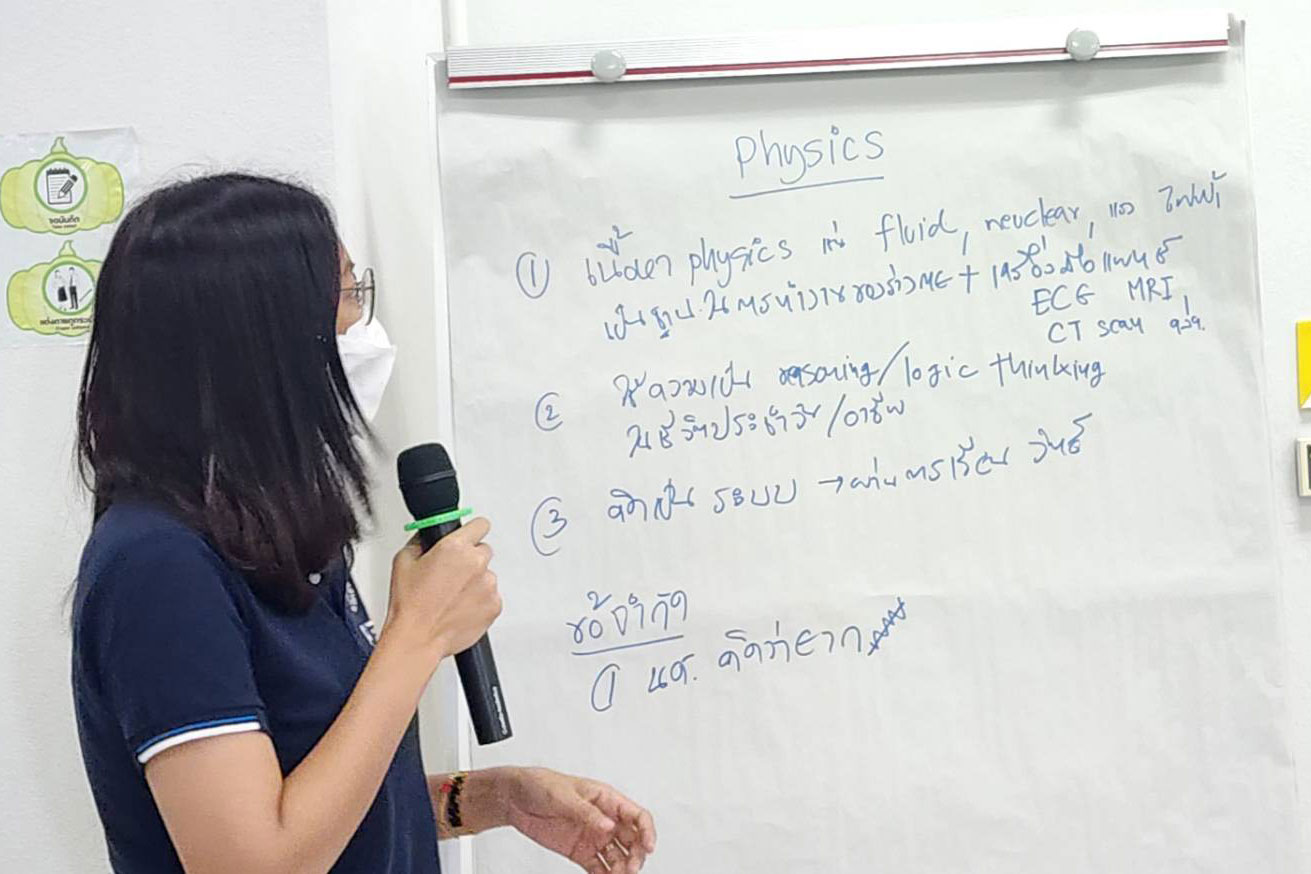 จดบันทึก
แต่งกายสุภาพ
Physics
① เนื้อหา physics เช่น fluid, neuclear, แสง ไฟฟ้า
เป็นฐานในการทำงานของร่างกาย + เครื่องมือแพทย์
ECG MRI,
CT scan ฯลฯ.
② ใช้ความเป็น reasoning/logic thinking
ในชีวิตประจำวัน/อาชีพ
③ คิดเป็น ระบบ → ผ่านการเรียน วิทย์
ข้อจำกัด
① นศ. คิดว่ายาก